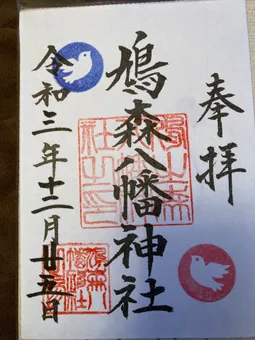 奉拝
鳩森八幡神社
令和三年十二月廿五日